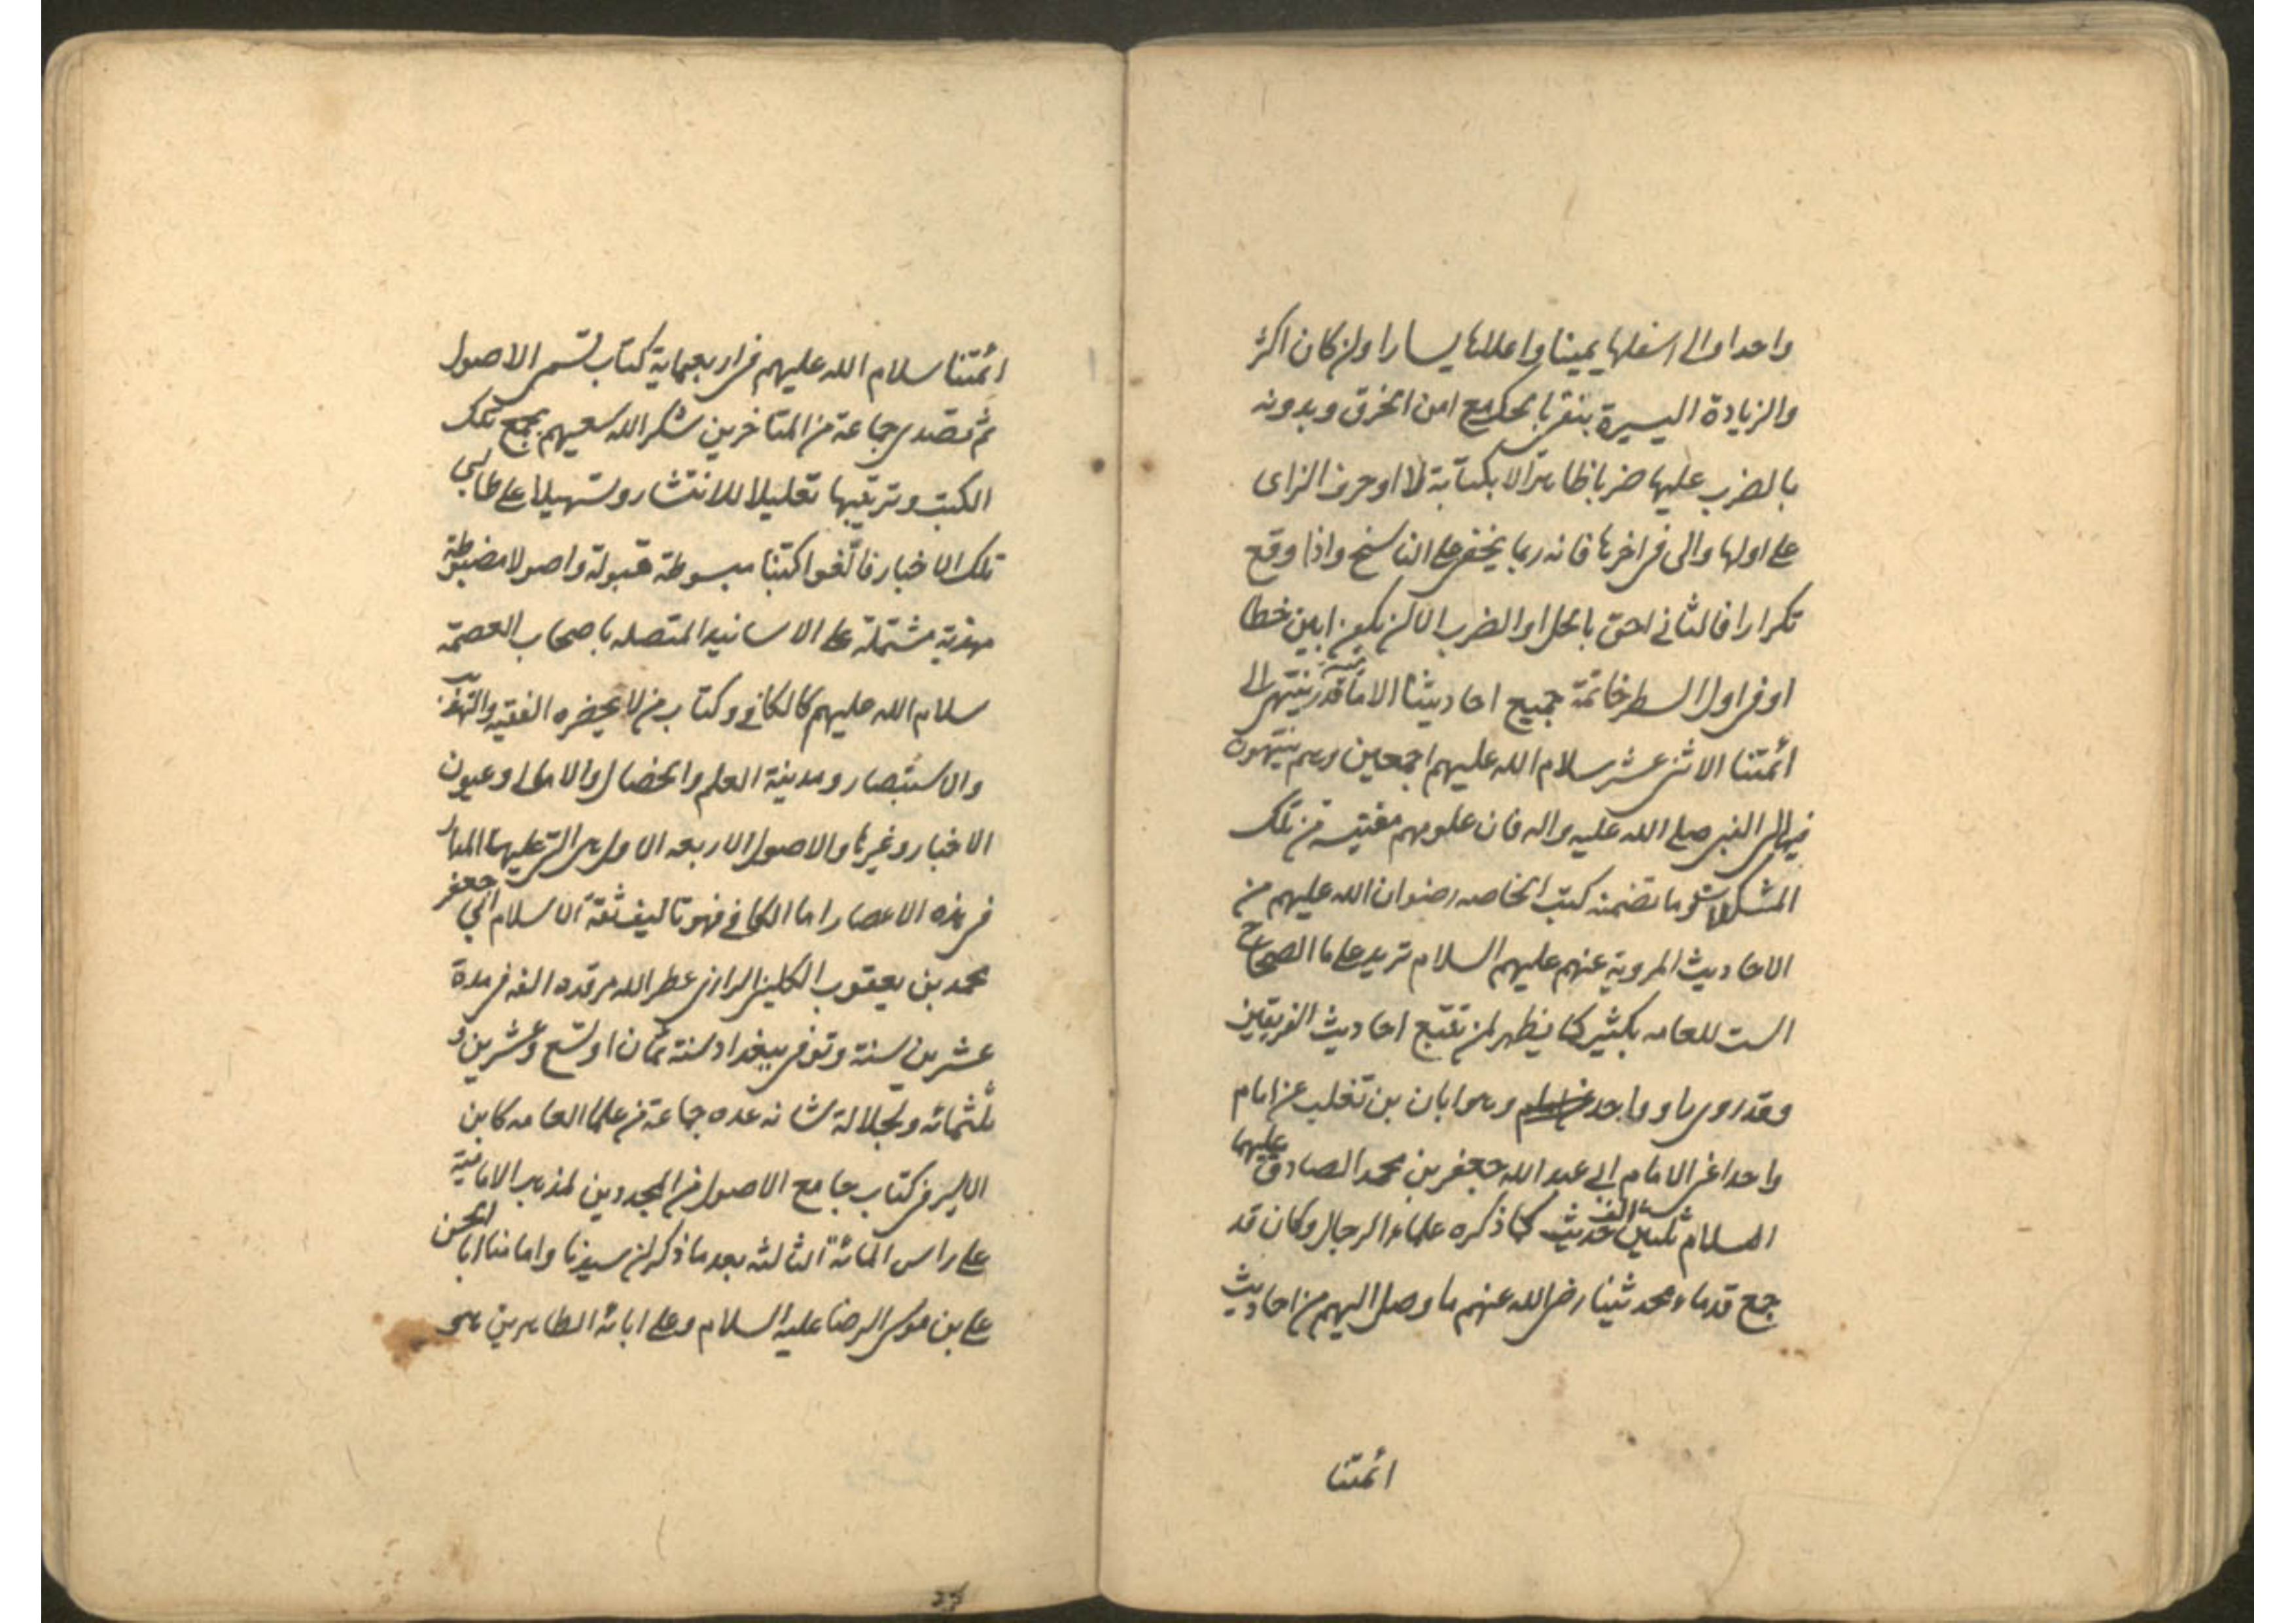 واحدا والى اسفلها يمينا واعلاها يسارا وان كان اكثر
والزيادة اليسيرة ينفى بالحك مع امن الخرق وبدونه
بالضرب عليها ضربا ظاهرا لا بكتابة لا او حرف الزاى
على اولها والى فى اخرها فانه ربما يخفى على الناسخ واذا وقع
تكرارا فالثانى احق بالحك او الضرب الا ان يكون ابين خطا
او فى اول السطر خاتمة جميع احاديثنا الا ما ندر ينتهى الى
ائمتنا الاثنى عشر سلام الله عليهم اجمعين وهم ينتهون
فيها الى النبى صلى الله عليه واله فان علومهم مقتبسة من تلك
المشكاة وما تضمنه كتب الخاصه رضوان الله عليهم من
الاحاديث المروية عنهم عليهم السلام تزيد على ما الصحاح
الست للعامه بكثير كما يظهر لمن تتبع احاديث الفريقين
وقد روى راو واحد وهو ابان بن تغلب عن امام
واحد اعنى الامام ابى عبد الله جعفر بن محمد الصادق عليهما
السلام ثلثين الف حديث كما ذكره علماء الرجال وكان قد
جمع قدماء محدثينا رضى الله عنهم ما وصل اليهم من احاديث
ائمتنا
ائمتنا سلام الله عليهم فى اربعماية كتاب تسمى الاصول
ثم تصدى جماعة من المتاخرين شكر الله سعيهم بجمع تلك
الكتب وترتيبها تقليلا للانتشار وتسهيلا على طالبى
تلك الاخبار فالّفوا كتبا مبسوطة مبولة واصولا مضبوطة
مهذبة مشتملة على الاسانيد المتصله باصحاب العصمة
سلام الله عليهم كالكافى وكتاب من لا يحضره الفقيه والتهذيب
والاستبصار ومدينة العلم والخصال والامالى وعيون
الاخبار وغيرها والاصول الاربعه الاول هى التى عليها المدار
فى هذه الاعصار اما الكافى فهو تاليف ثقة الاسلام ابى جعفر
محمد بن يعقوب الكلينى الرازى عطر الله مرقده الفه فى مدة
عشرين سنة وتوفى ببغداد سنة ثمان او تسع وعشرين و
ثلثمائه ولجلالة شانه عده جماعة من علما العامه كابن
الاثير فى كتاب جامع الاصول من المجددين لمذهب الامامية
على راس المائة الثالثه بعد ما ذكر ان سيدنا وامامنا ابا الحسن
على بن موسى الرضا عليه السلام وعلى ابائه الطاهرين هو